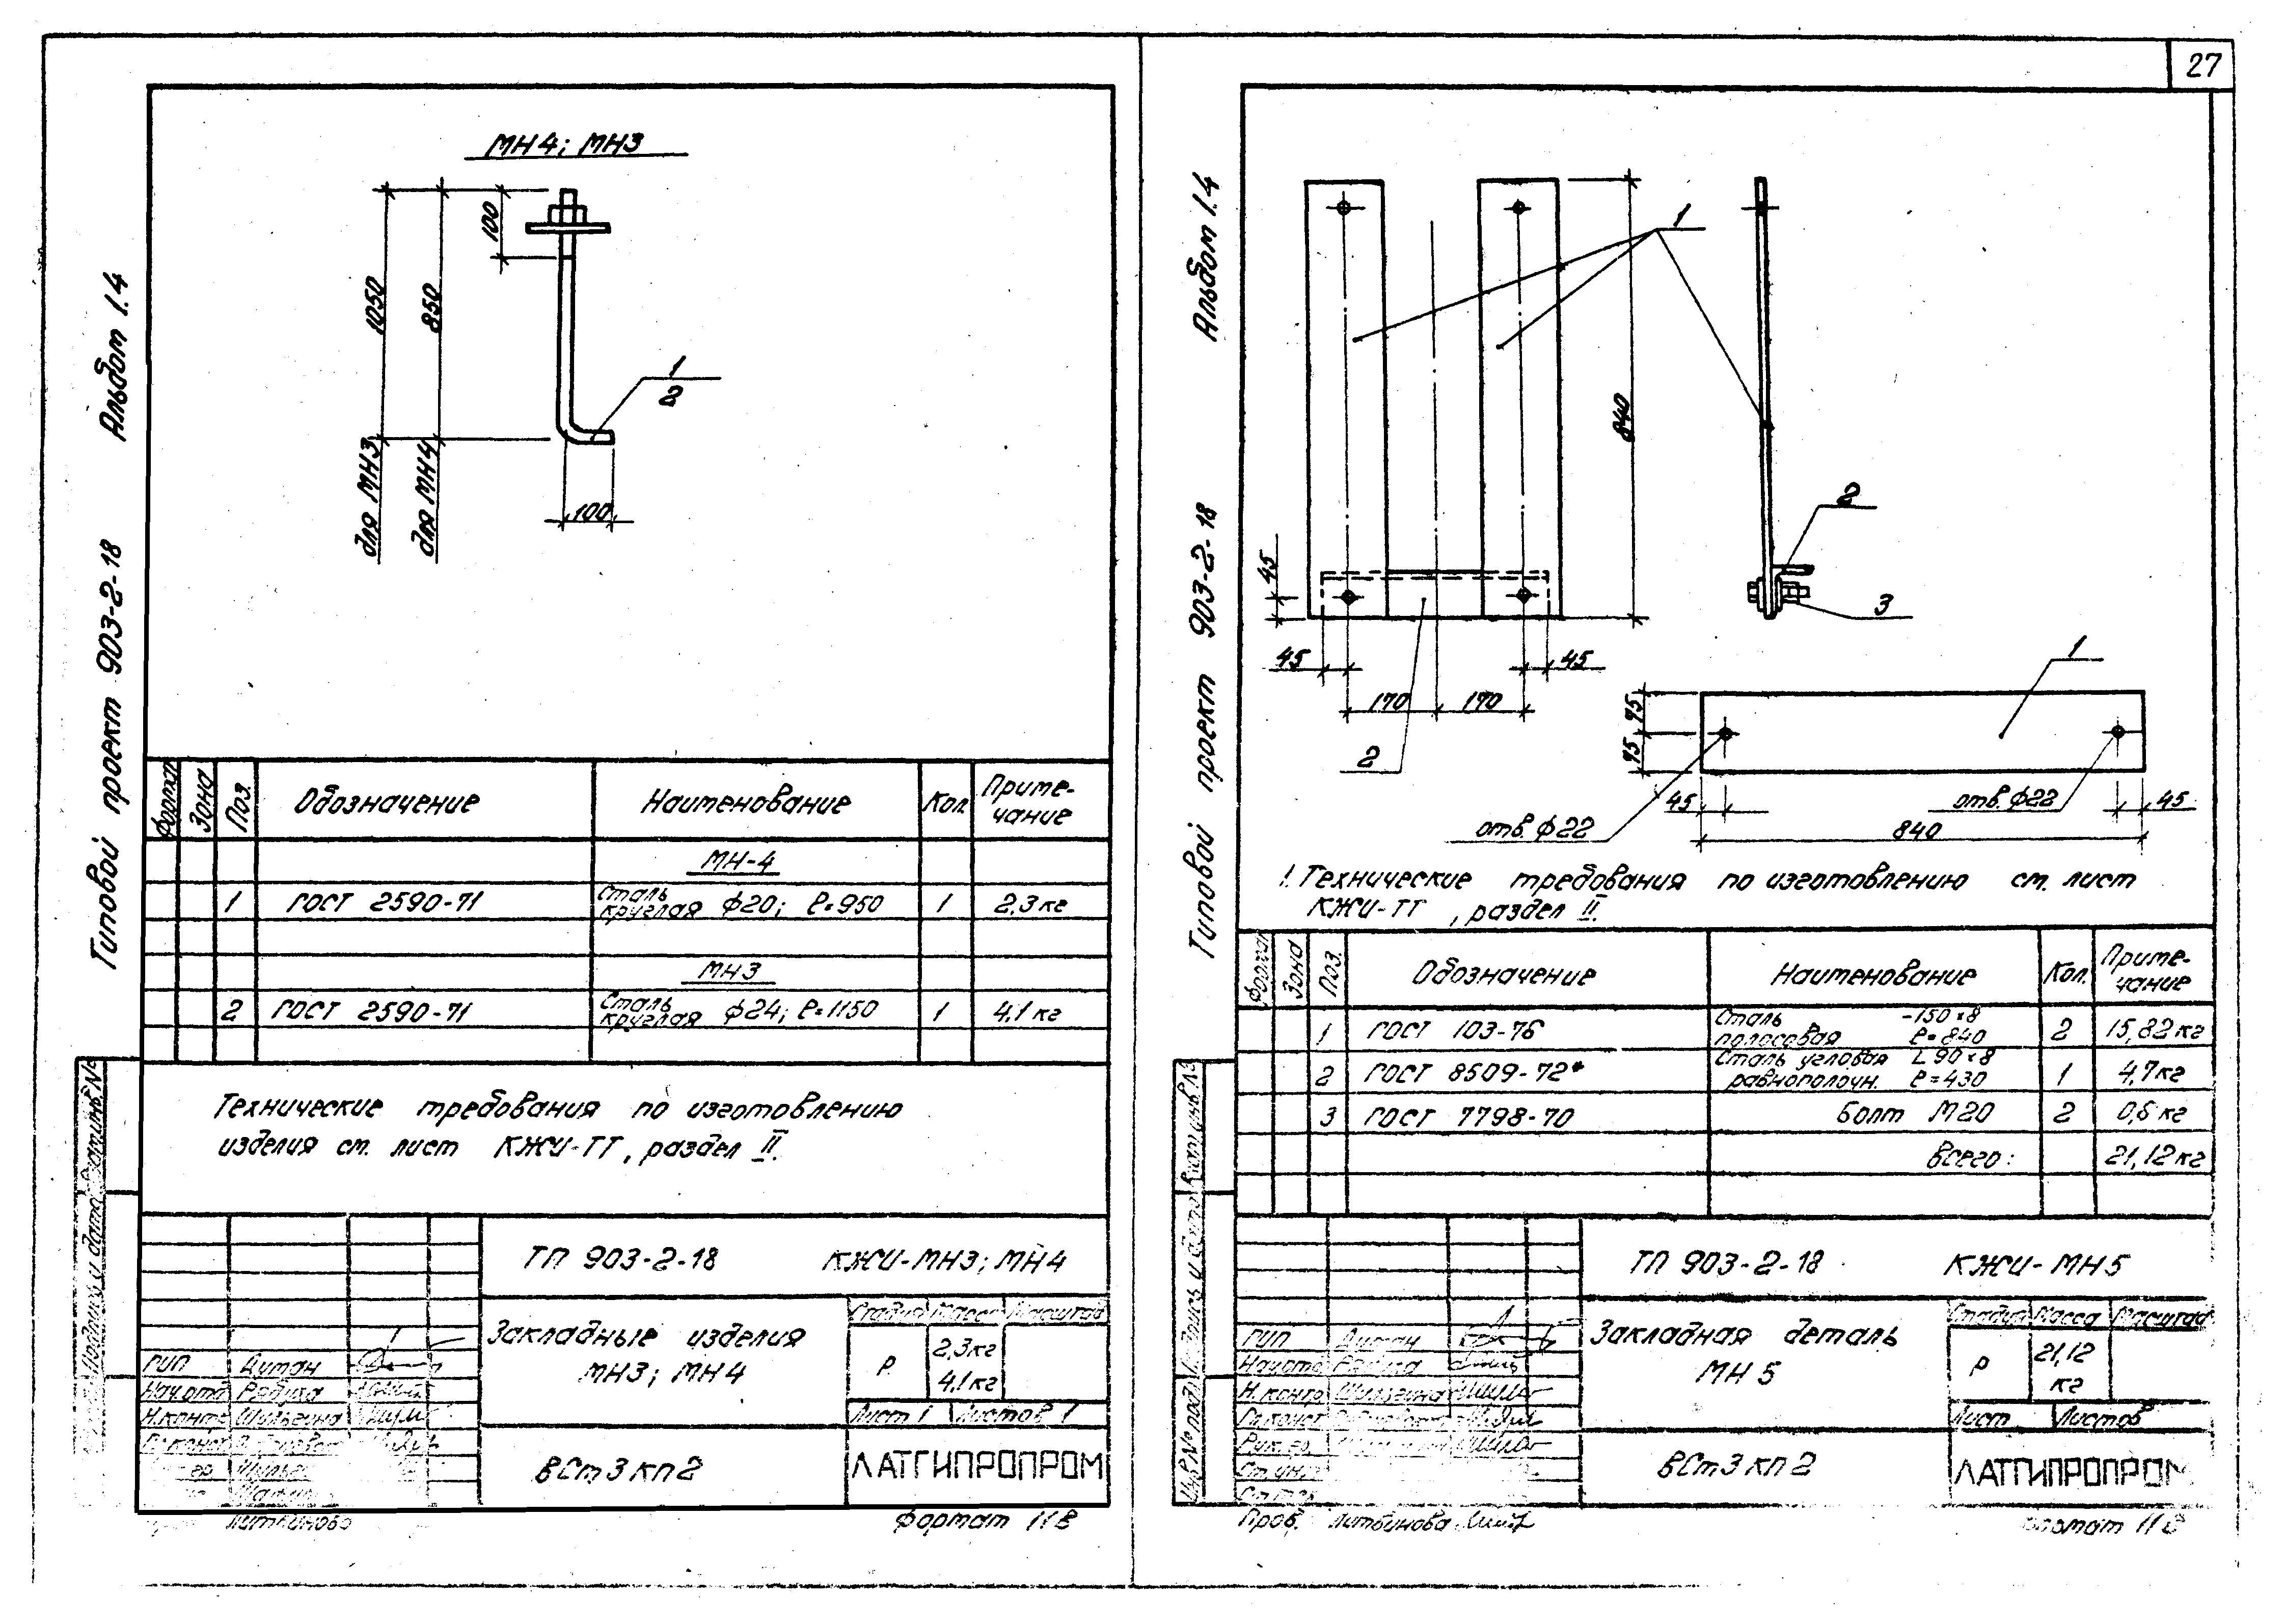 27
Альбом 1.4
Типовой проект 903-2-18
МН4; МН3
100
1050
850
для МН3
для МН4
1
2
100
Формат
Зона
Поз.
Обозначение
Наименование
Кол.
Приме-
чание
МН-4
1 ГОСТ 2590-71 Сталь круглая ф20; ℓ=950 1 2,3 кг
МН3
2 ГОСТ 2590-71 Сталь круглая ф24; ℓ=1150 1 4,1 кг
Технические требования по изготовлению
изделия см. лист КЖИ-ТТ, раздел II.
ТП 903-2-18 КЖИ-МН3; МН4
Закладные изделия
МН3; МН4
Стадия Масса Масштаб
Р
2,3кг
4,1кг
Лист 1 Листов 1
ВСт3кп2
ЛАТГИПРОПРОМ
ГИП Дитан
Нач.отд Рядука
Н.контр Шульгина
Литвинова
Формат 11В
Альбом 1.4
Типовой проект 903-2-18
1
840
2
3
45
45
45
170
170
2
1
75
75
45
отв. ф22
отв. ф22
45
840
1. Технические требования по изготовлению см. лист
КЖИ-ТТ , раздел II.
Формат
Зона
Поз.
Обозначение
Наименование
Кол.
Приме-
чание
1 ГОСТ 103-76 Сталь полосовая -150×8 ℓ=840 2 15,82 кг
2 ГОСТ 8509-72* Сталь угловая равнополочн. L 90×8 ℓ=430 1 4,7кг
3 ГОСТ 7798-70 Болт М20 2 0,6 кг
Всего: 21,12 кг
ТП 903-2-18 КЖИ-МН5
Закладная деталь
МН5
Стадия Масса Масштаб
Р
21,12
кг
Лист Листов
ВСт3кп2
ЛАТГИПРОПРОМ
ГИП Дитан
Нач.отд Рядука
Н.контр Шульгина
Пров. Литвинова
Формат 11В